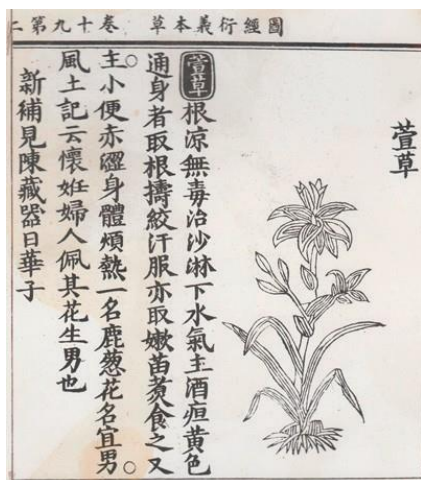 圖經衍義本草 卷十九第二
萱草
萱草根涼無毒治沙淋下水氣主酒疸黃色
通身者取根擣絞汁服亦取嫩苗煑食之又
○主小便赤澀身體煩熱一名鹿葱花名宜男○
風土記云懷姙婦人佩其花生男也
新補見陳藏器日華子